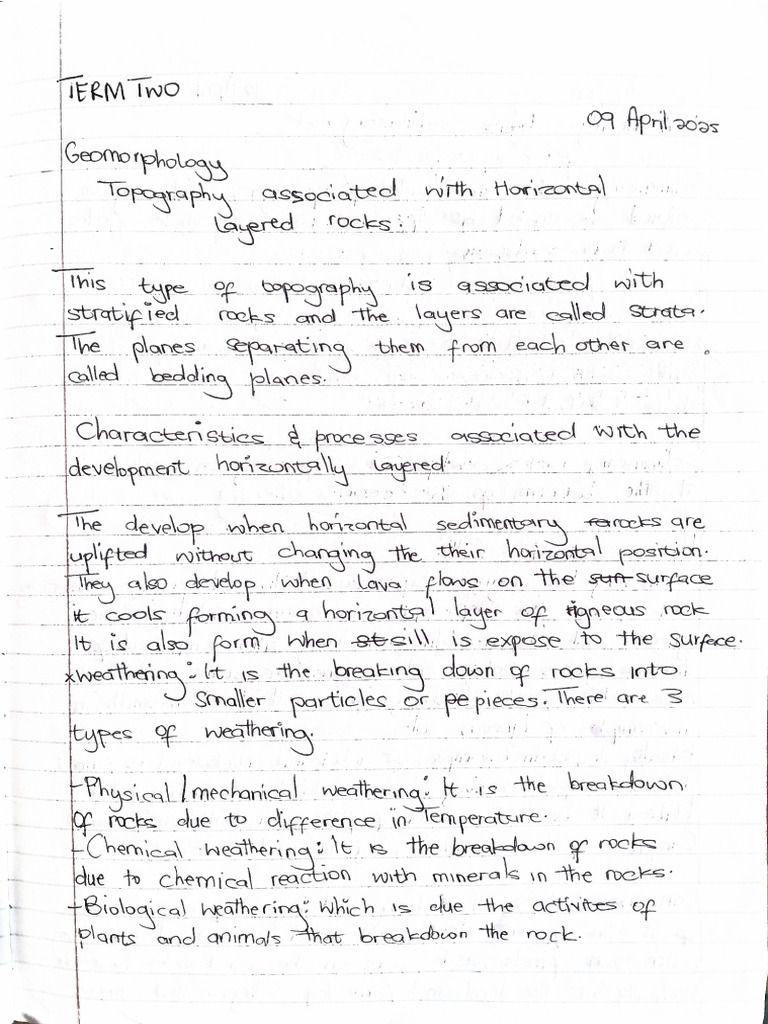 TERM TWO
09 April 2025
Geomorphology
Topography associated with Horizontal
layered rocks.
This type of topography is associated with
stratified rocks and the layers are called strata.
The planes separating them from each other are
called bedding planes.
Characteristics & processes associated with the
development horizontally layered
The develop when horizontal sedimentary rocks are
uplifted without changing the their horizontal position.
They also develop when lava flows on the surface
it cools forming a horizontal layer of igneous rock
It is also form when sill is expose to the surface.
xweathering: It is the breaking down of rocks into
smaller particles or pieces. There are 3
types of weathering.
-Physical/mechanical weathering: It is the breakdown
of rocks due to difference in Temperature.
-Chemical weathering: It is the breakdown of rocks
due to chemical reaction with minerals in the rocks.
-Biological weathering: which is due the activites of
plants and animals that breakdown the rock.